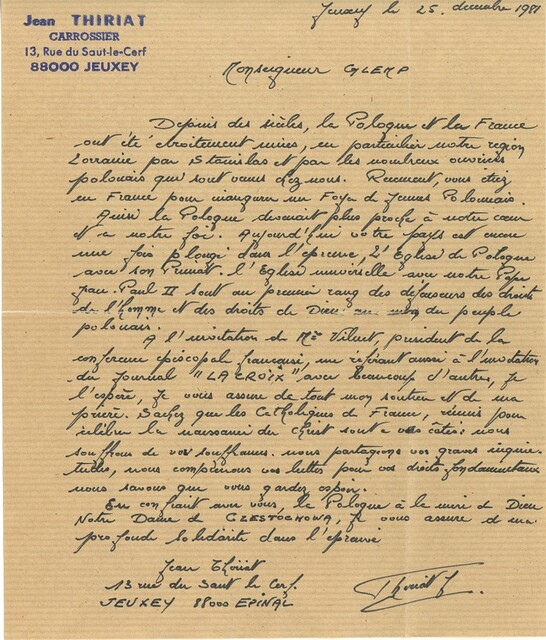 Jean THIRIAT
CARROSSIER
13, Rue du Saut-le-Cerf
88000 JEUXEY
Jeuxey le 25 decembre 1981
Monseigneur GLEMP
Depuis des siècles, la Pologne et la France
ont été étroitement unies, en particulier notre région
Lorraine par Stanislas et par les nombreux ouvriers
polonais qui sont venus chez nous. Récemment, vous étiez
en France pour inaugurer un Foyer de Jeunes Polonais.
Ainsi la Pologne devenait plus proche à notre cœur
et a notre foi. Aujourd'hui votre pays est encore
une fois plongé dans l'épreuve, L'Eglise de Pologne
avec son Primat. l'Eglise universelle avec notre Pape
Jean. Paul II sont au premier rang des défenseurs des droits
de l'homme et des droits de Dieu au nom du peuple
polonais.
A l'invitation de Mgr Vilnet, président de la
conférence épiscopale française, me référant aussi à l'invitation
du journal "LA CROIX" avec beaucoup d'autres, je
l'espère, je vous assure de tout mon soutien et de ma
prière. Sachez que les Catholiques de France, réunis pour
célébrer la naissance du Christ sont a vos cotés: nous
souffrons de vos souffrances. nous partageons vos graves inquié-
tudes, nous comprenons vos luttes pour vos droits fondamentaux
nous savons que vous gardez espoir.
En confiant avec vous, la Pologne à la mère de Dieu
Notre Dame de CZESTOCHOWA, je vous assure de ma
profonde solidarité dans l'épreuve
Jean Thiriat
13 rue du Saut le Cerf.
JEUXEY 88000 EPINAL
Thiriat J.